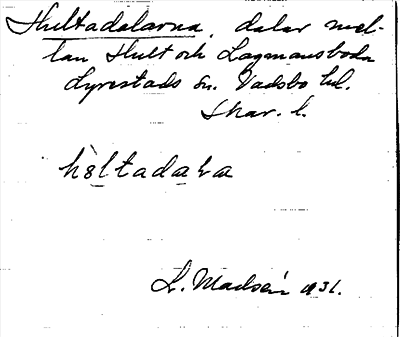 Hultadalarna, dalar mel-
lan Hult och Lagmansboda
Lyrestads sn. Vadsbo hd.
Skar. l.
hɵltadaɽa
L. Madsén 1931.